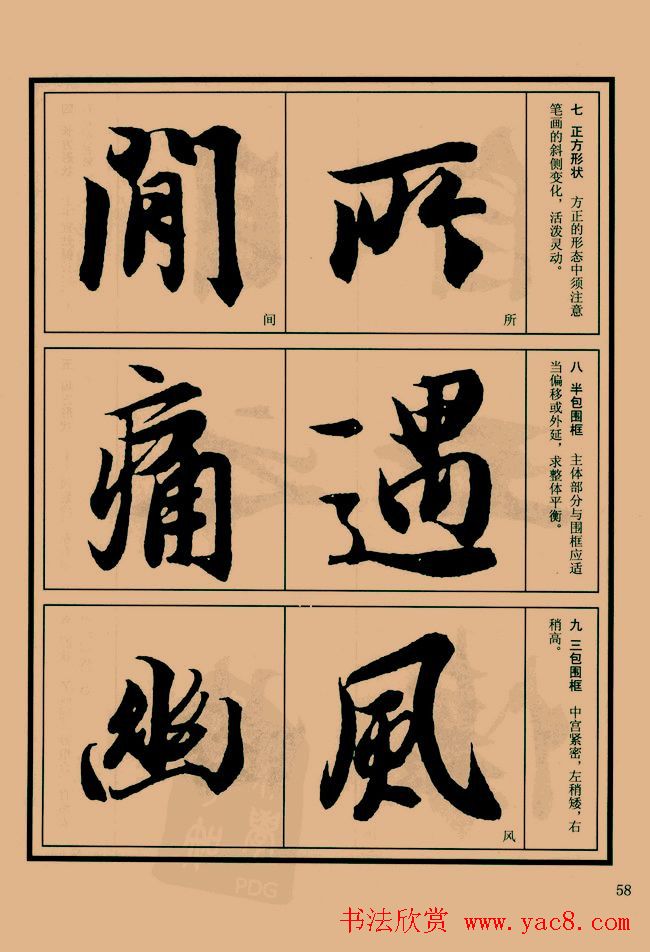 七 正方形状 方正的形态中须注意
笔画的斜侧变化，活泼灵动。
所
所
閒
间
八 半包围框 主体部分与围框应适
当偏移或外延，求整体平衡。
遇
痛
九 三包围框 中宫紧密，左稍矮，右
稍高。
風
风
幽
PDG
58
书法欣赏 www.yac8.com